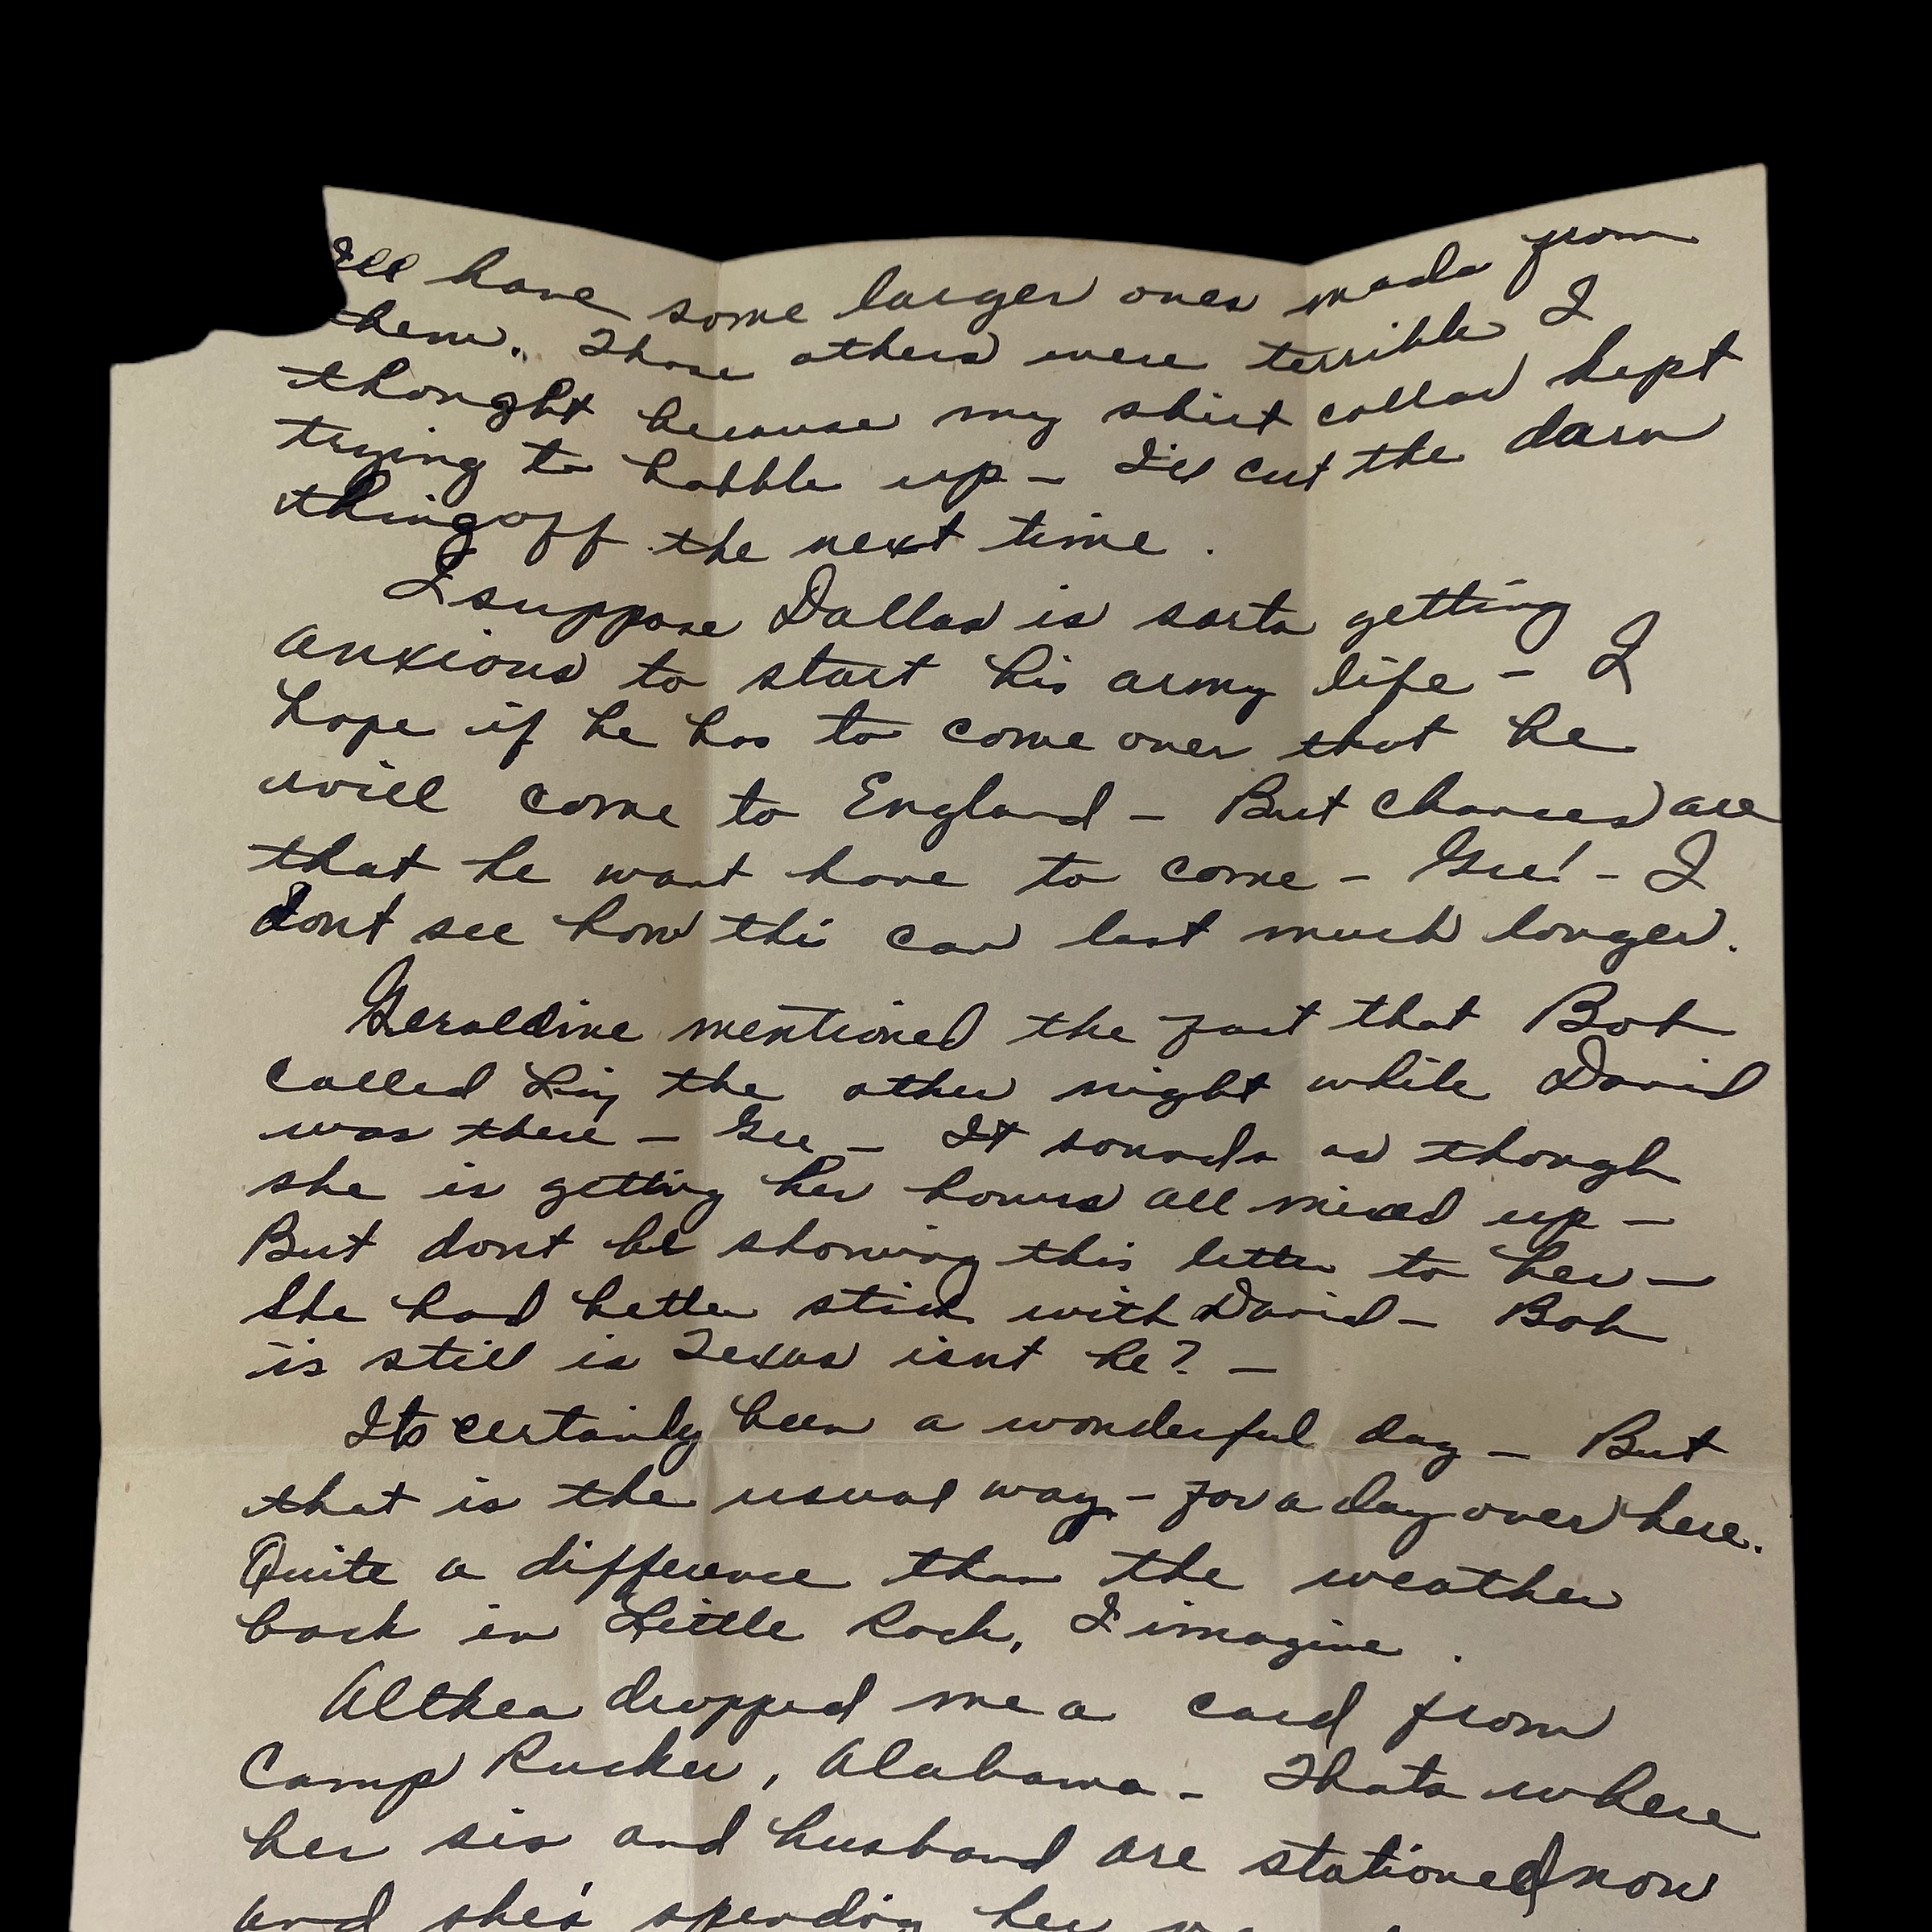 I'll have some larger ones made from
them. Those others were terrible I
thought because my shirt collar kept
trying to bobble up - I'll cut the darn
thing off the next time.
I suppose Dallas is sorta getting
anxious to start his army life - I
hope if he has to come over that he
will come to England - But chances are
that he wont have to come - Gee! - I
dont see how this can last much longer.
Geraldine mentioned the fact that Bob
called Liz the other night while David
was there - Gee - It sounds as though
she is getting her hours all mixed up -
But dont be showing this letter to her -
She had better stick with David - Bob
is still in Texas isnt he? -
Its certainly been a wonderful day - But
that is the usual way - for a day over here.
Quite a difference than the weather
back in Little Rock, I imagine.
Althea dropped me a card from
Camp Rucker, Alabama - Thats where
her sis and husband are stationed now
and she's spending her